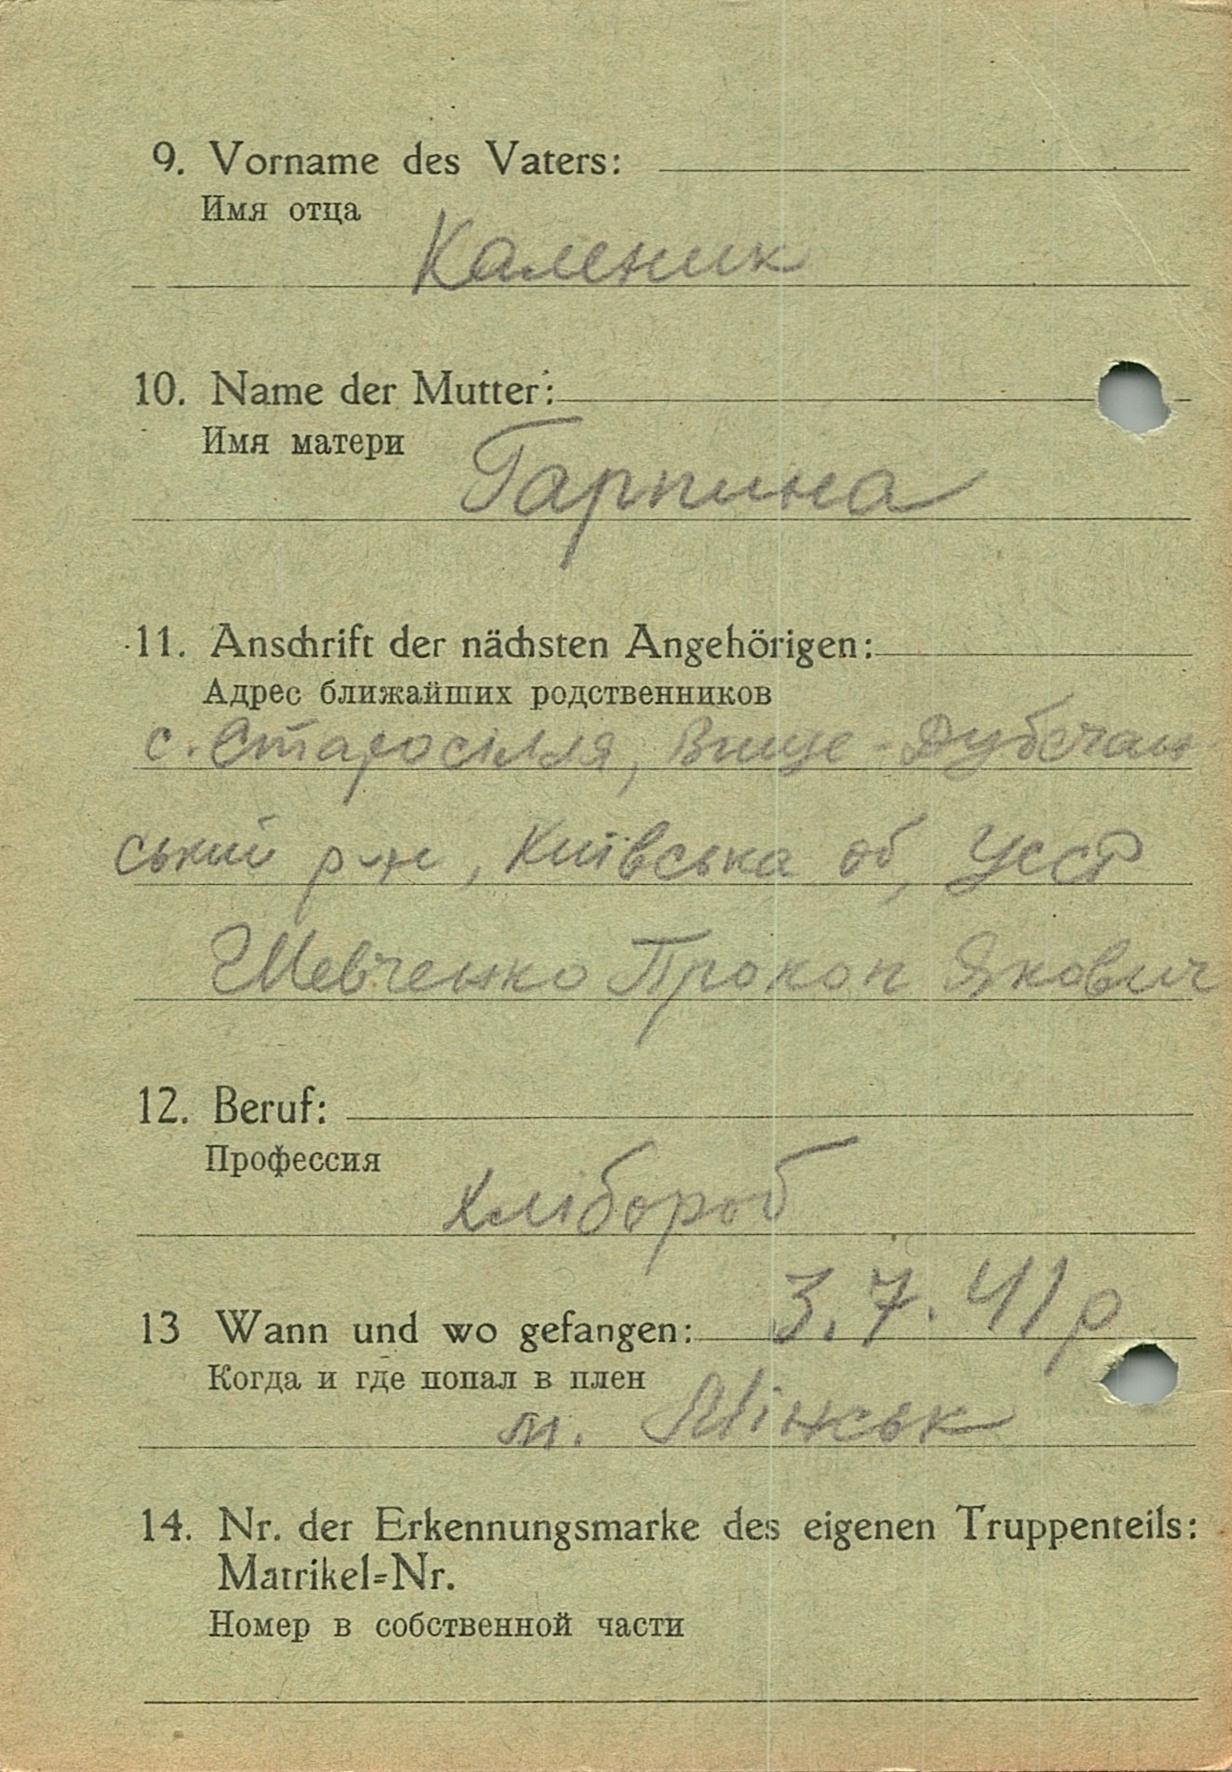 9. Vorname des Vaters:
Имя отца
Каленик
10. Name der Mutter:
Имя матери
Гарпина
11. Anschrift der nächsten Angehörigen:
Адрес ближайших родственников
с. Старосілля, Вище-Дубечан
ський р-н, Київська об, УССР
Шевченко Прокоп Якович
12. Beruf:
Профессия
Хлібороб
13 Wann und wo gefangen: 3.7.41 р
Когда и где попал в плен
м. Мінськ
14. Nr. der Erkennungsmarke des eigenen Truppenteils:
Matrikel=Nr.
Номер в собственной части